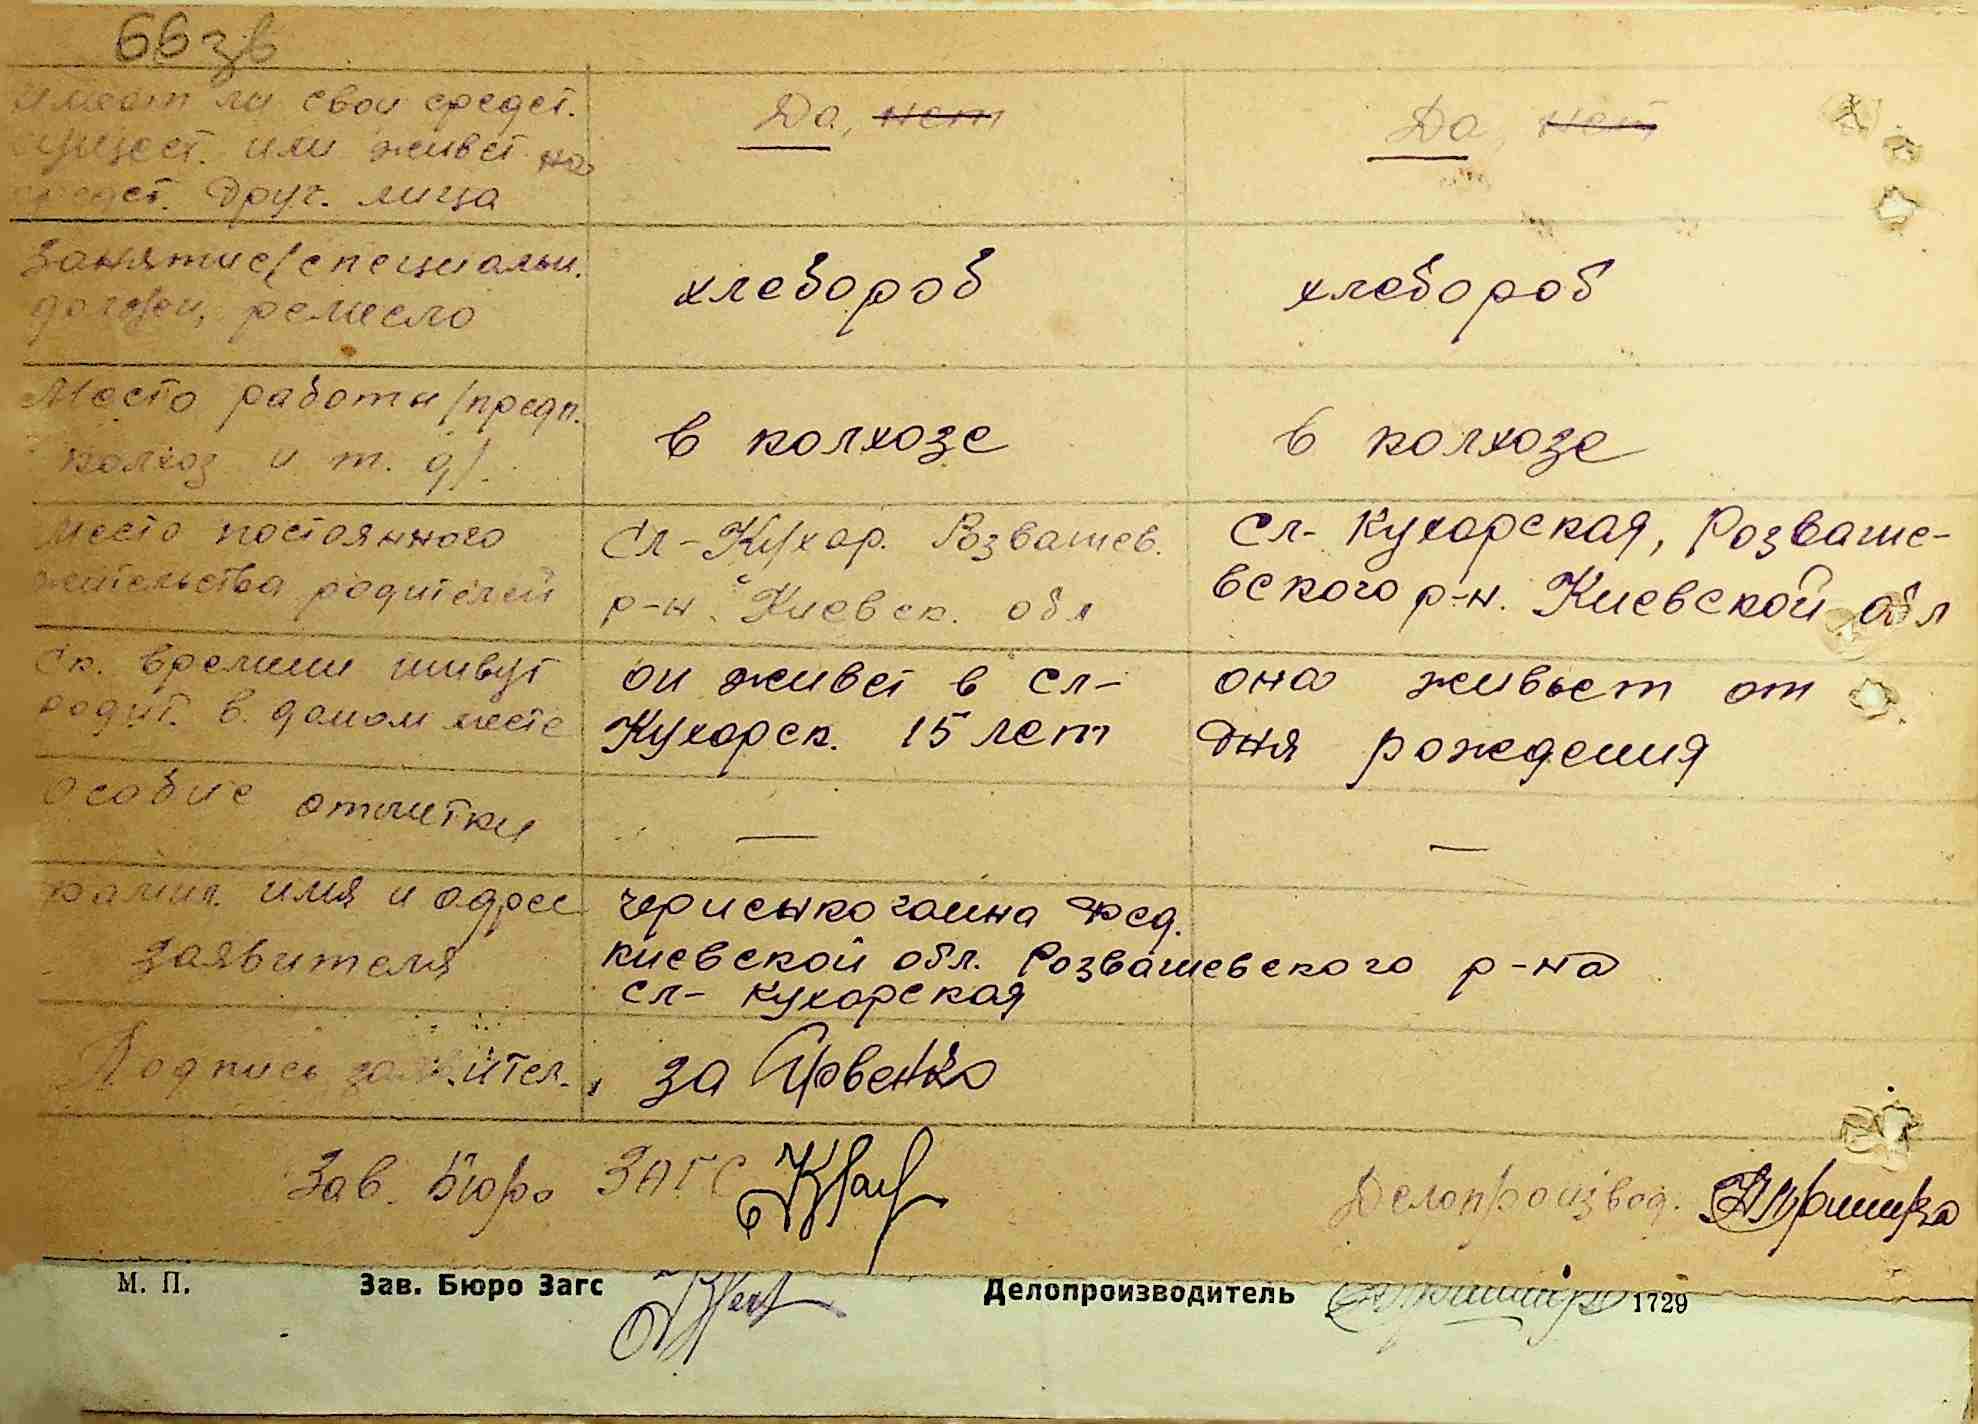 66 зв
Имеет ли свои средст.
сущест. или живет на
средст. друг. лица
Да, нет
Да, нет
Занятие/специальн.
должн, ремесло
хлебороб
хлебороб
Место работы/предп.
колхоз и т. д/.
в колхозе
в колхозе
Место постоянного
жительства родителей
Сл-Кухар. Розвашев.
р-н. Киевск. обл
Сл- Кухарская, Розваше-
вского р-н. Киевской обл
Ск. времини живут
родит. в даном месте
он живет в сл-
Кухарск. 15 лет
она живьет от
дня рождения
Особие отмитки
—
—
Фамил. имя и адрес
заявителя
Фед.
Киевской обл. Розвашевского р-на
сл- Кухарская
Подпись заявител.
за
Зав. Бюро ЗАГС
Делопроизвод.
М. П. Зав. Бюро Загс Делопроизводитель 1729